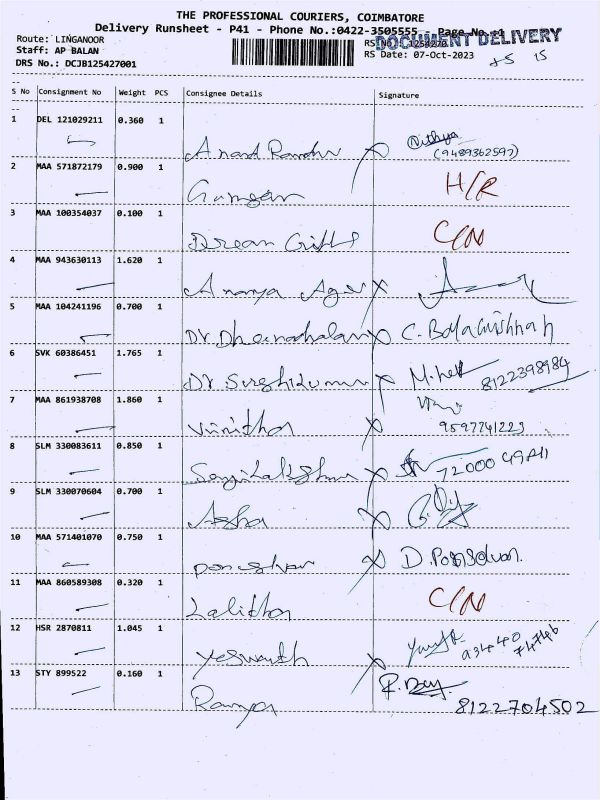 THE PROFESSIONAL COURIERS, COIMBATORE
Delivery Runsheet - P41 - Phone No.:0422-3505555 Page No.:1
DOCUMENT DELIVERY
Route: LINGANOOR
Staff: AP BALAN
DRS No.: DCJB125427001
RS No. 1254270
RS Date: 07-Oct-2023
15
S No Consignment No Weight PCS Consignee Details Signature
1 DEL 121029211 0.360 1 Anand Nithya
(9489362597)
2 MAA 571872179 0.900 1 H/R
3 MAA 100354037 0.100 1 Dream Gifts C/N
4 MAA 943630113 1.620 1 Ananya
5 MAA 104241196 0.700 1 Dr. C. Balakrishnan
6 SVK 60386451 1.765 1 Dr 8122398984
7 MAA 861938708 1.860 1 Vinitha 9597741223
8 SLM 330083611 0.850 1
9 SLM 330070604 0.700 1 Asha
10 MAA 571401070 0.750 1 D. Ponselvan.
11 MAA 860589308 0.320 1 Lalitha C/N
12 HSR 2870811 1.045 1 Yeswanth
13 STY 899522 0.160 1 Ramya
8122704502